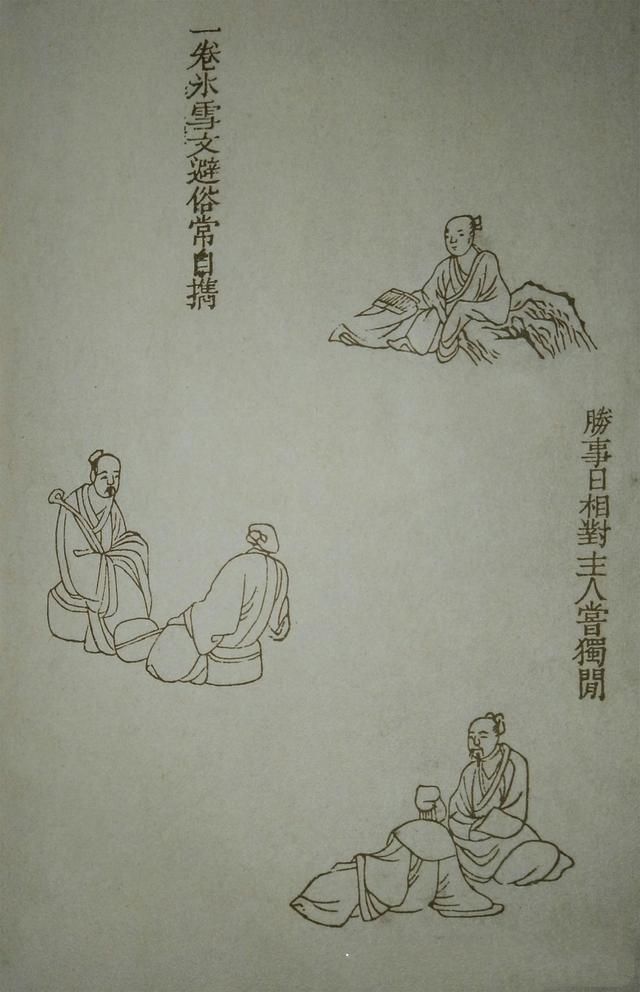 勝事日相對主人嘗獨閒
一卷氷雪文避俗常自擕